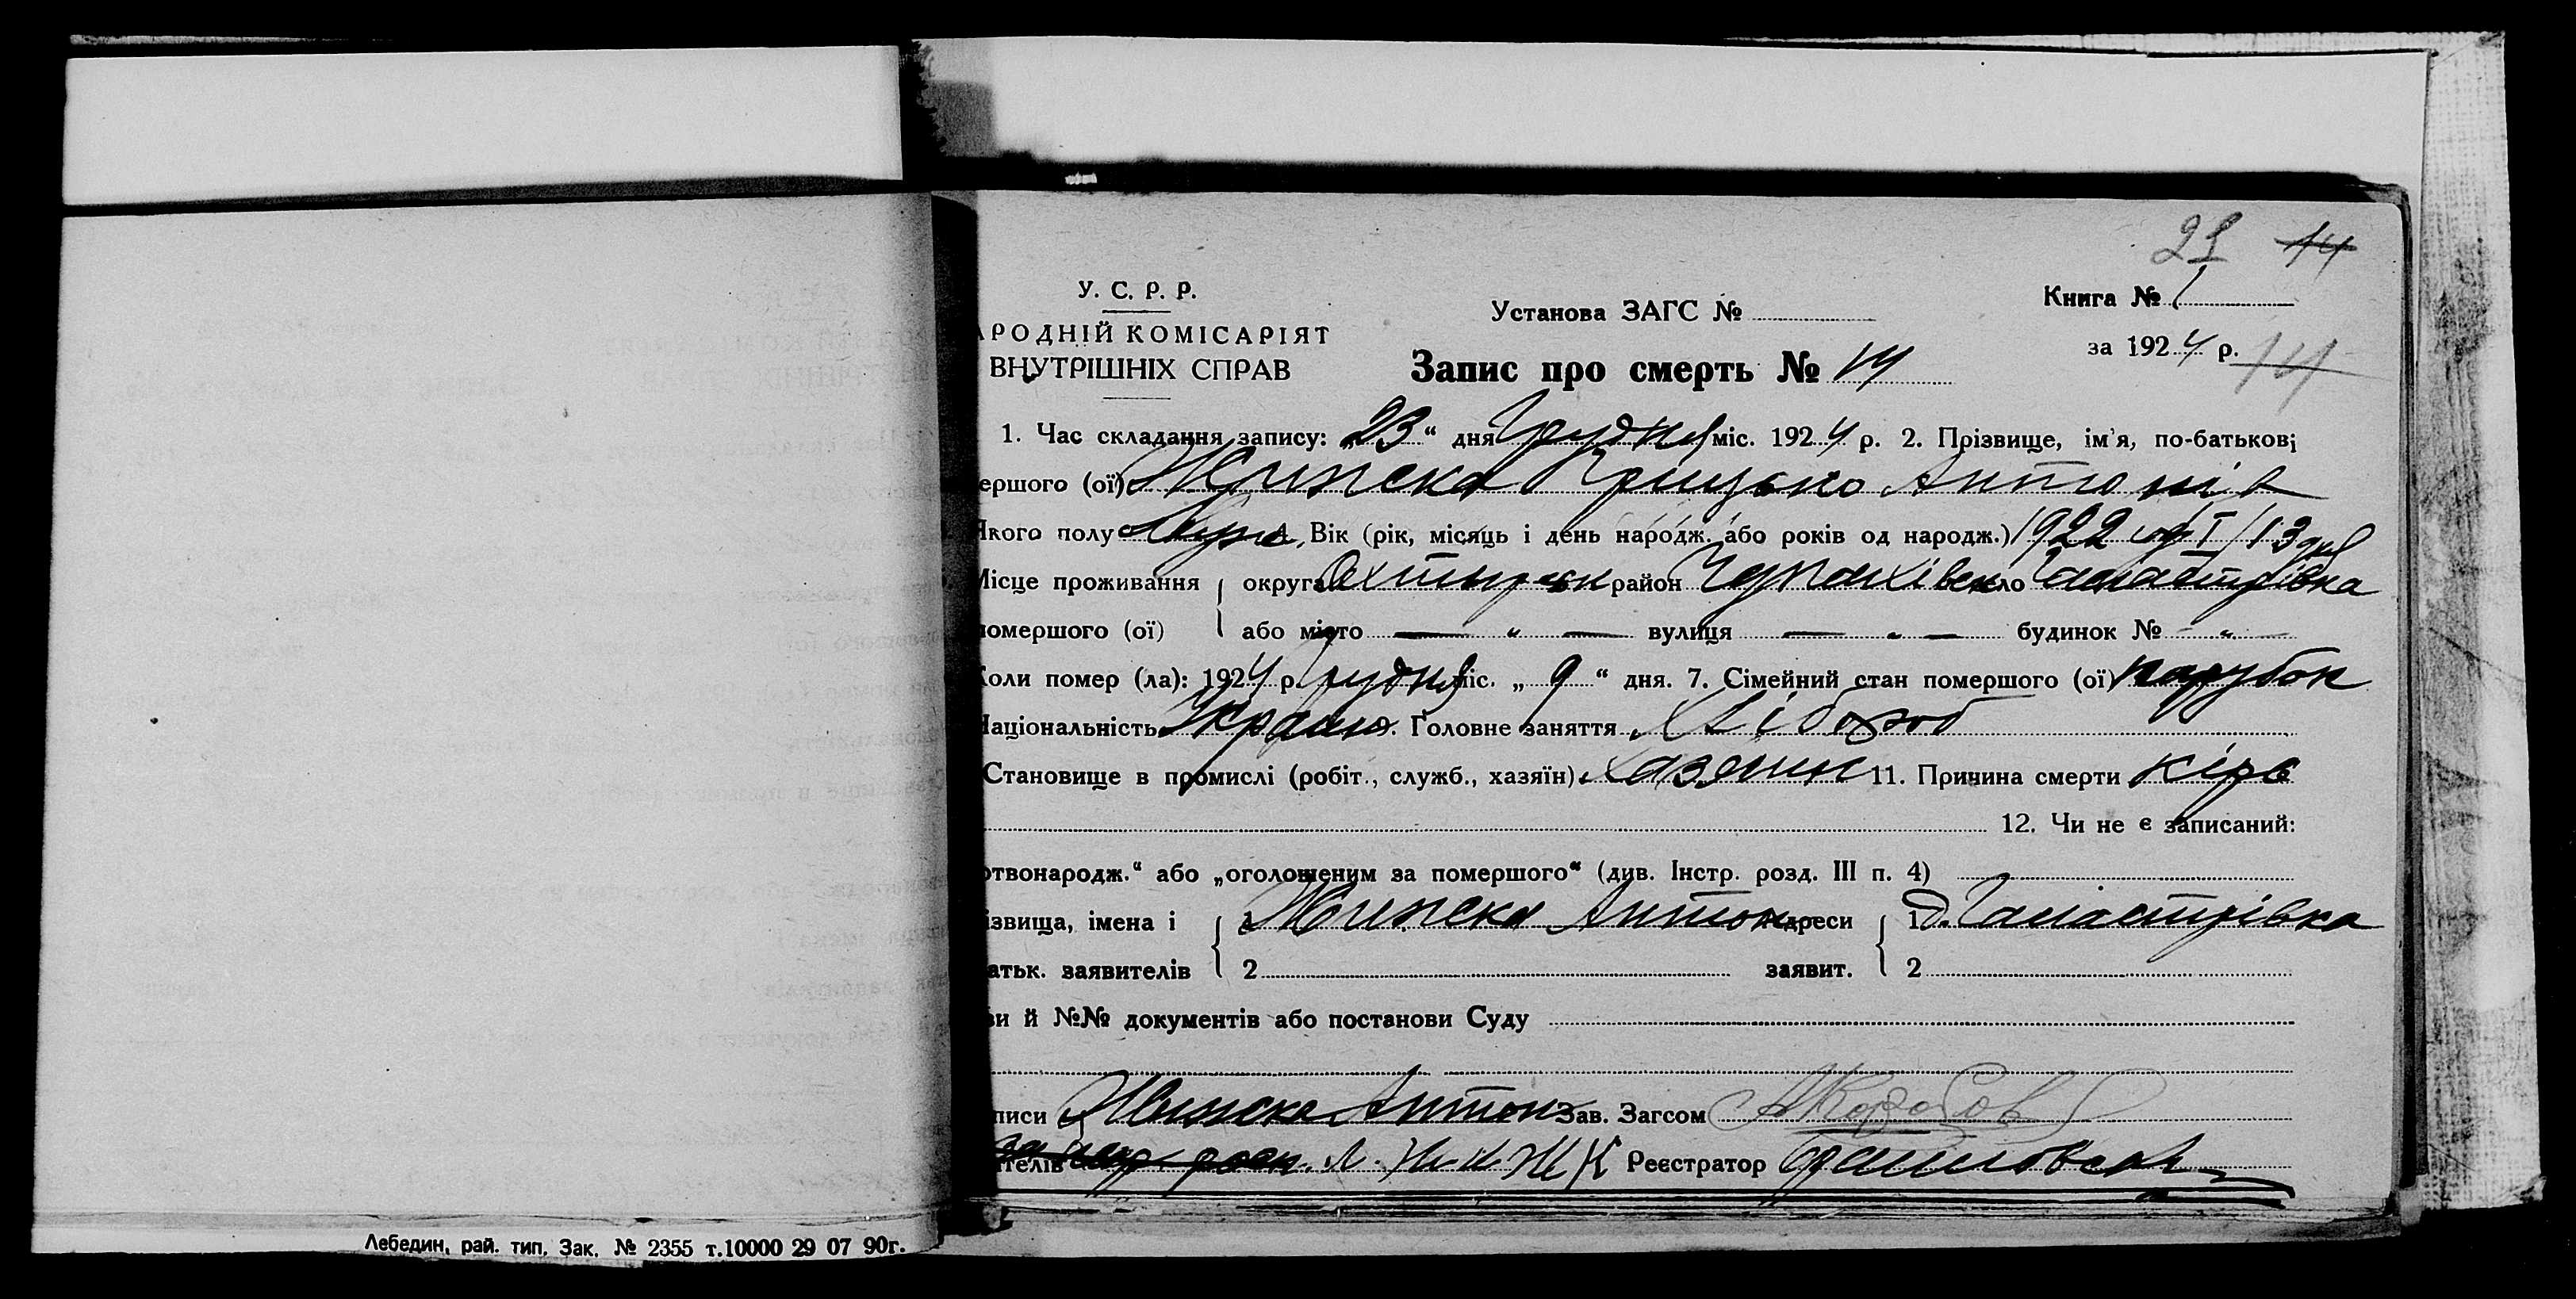 21 14
У. С. Р. Р.
АРОДНІЙ КОМІСАРІЯТ
ВНУТРІШНІХ СПРАВ
Установа ЗАГС №
Книга № 1
за 1924 р. 14
Запис про смерть № 14
1. Час складання запису: „23“ дня Грудня міс. 1924 р. 2. Прізвище, ім'я, по-батькові
ершого (ої) Грицько Антонів
Якого полу Муж. Вік (рік, місяць і день народж. або років од народж.) 1922 I/13
Місце проживання округа Охтырськ район село
помершого (ої) або місто — „ — вулиця — „ — будинок № - „ —
Коли помер (ла): 1924 р. Грудня міс. „ 9 “ дня. 7. Сімейний стан помершого (ої) парубок
Національність Україн. Головне заняття Хлібороб
Становище в промислі (робіт., служб., хазяїн) Хазяин 11. Причина смерти кірь
12. Чи не є записаний:
ртвонародж.“ або „оголошеним за помершого“ (див. Інстр. розд. III п. 4)
ізвища, імена і 1 Антон Адреси 1
атьк. заявителів 2 заявит. 2
ви й №№ документів або постанови Суду
писи Антон Зав. Загсом
ителів Реєстратор
Лебедин, рай. тип. Зак. № 2355 т.10000 29 07 90г.